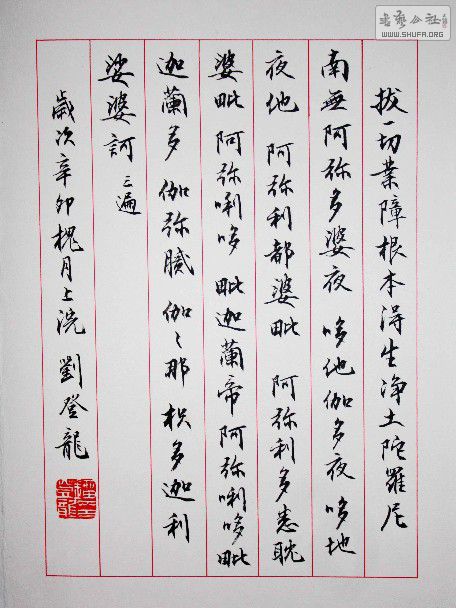 書藝公社
WWW.SHUFA.ORG
拔一切業障根本得生净土陀羅尼
南無阿弥多婆夜 哆他伽多夜 哆地
夜他 阿弥利都婆毗 阿弥利多悉耽
婆毗 阿弥唎哆 毗迦蘭帝 阿弥唎哆 毗
迦蘭多 伽弥膩 伽〻那 枳多迦利
娑婆訶 三遍
歲次辛卯槐月上浣 劉登龍